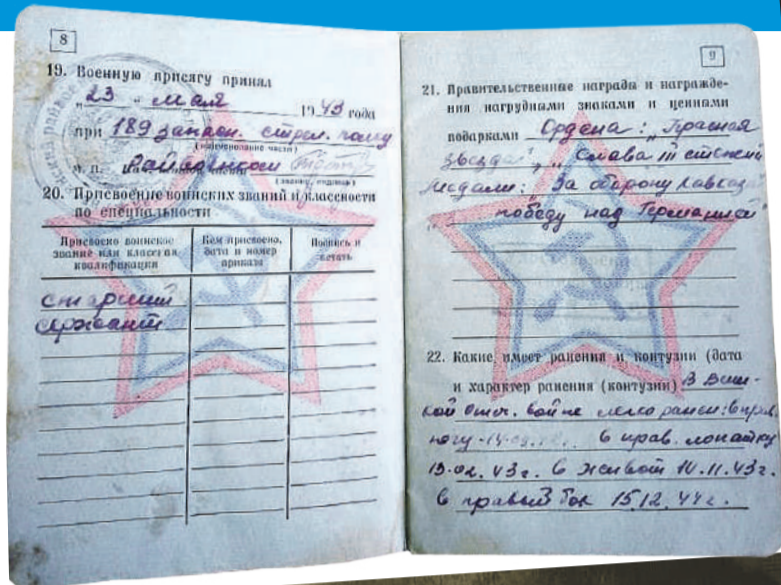 8
19. Военную присягу принял
„23 “ мая 1943 года
при 189 запасн. стрел. полку
(наименование части)
м. п.
(звание, подпись)
20. Присвоение воинских званий и классности
по специальности
Присвоено воинское звание или классная квалификация
Кем присвоено, дата и номер приказа
Подпись и печать
старший
сержант
9
21. Правительственные награды и награжде-
ния нагрудными знаками и ценными
подарками Ордена: „Красная
звезда“, „Слава III степени
Медали: За оборону Кавказа
„ победу над Германией“
22. Какие имеет ранения и контузии (дата
и характер ранения (контузии) В Вели-
кой Отеч. войне легко ранен: в прав.
ногу в прав. лопатку
19.02.43г. в живот 10.11.43г.
в правый бок 15.12.44г.